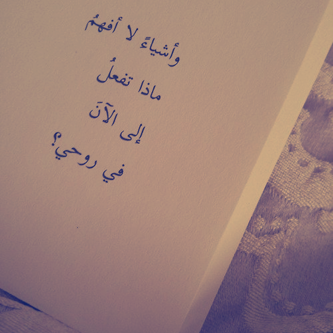 وأشياءً لا أفهمُ
ماذا تفعلُ
إلى الآنَ
في روحي؟